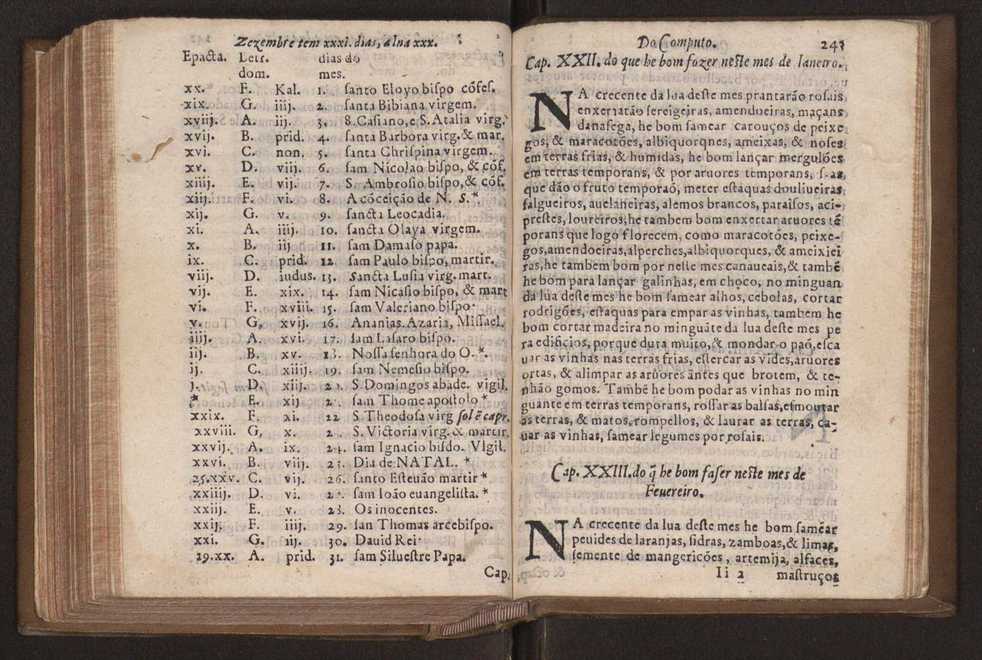 Zezembre tem xxxi. dias, alua xxx.
Epacta. Letr. dias do
dom. mes.
xx. F. Kal. 1. santo Eloyo bispo cōfes.
xix. G. iiij. 2. santa Bibiana virgem.
xviij. A. iij. 3. S. Casiano, e S. Atalia virg.
xvij. B. prid. 4. santa Barbora virg. & mar.
xvi. C. non. 5. santa Chrispina virgem.
xv. D. viij. 6. sam Nicolao bispo, & cōf.
xiiij. E. vij. 7. S. Ambrosio bispo, & cōf.
xiij. F. vi. 8. A cōceição de N. S. *
xij. G. v. 9. sancta Leocadia.
xi. A. iiij. 10. sancta Olaya virgem.
x. B. iij 11. sam Damaso papa.
ix. C. prid. 12. sam Paulo bispo, martir.
viij. D. iudus. 13. Sancta Lusia virg. mart.
vij. E. xix. 14. sam Nicasio bispo, & mart
vi. F. xviii. 15. sam Valeriano bispo.
v. G. xvij. 16. Ananias. Azaria, Missael.
iiij. A. xvi. 17. sam Lasaro bispo.
iij. B. xv. 18. Nossa senhora do O. *.
ij. C. xiiij. 19. sam Nemesio bispo.
j. D. xiij. 20. S. Domingos abade. vigil.
* E. xij 21. sam Thome apostolo *
xxix. F. xi. 22 S. Theodosa virg sol ē capr.
xxviii. G, x. 2 S. Victoria virg. & martir.
xxvij. A. ix. 24. sam Ignacio bisdo. VIgil.
xxvi. B. viij. 25. Dia de NATAL. *
25.xxv. C. vij. 26. santo Esteuão martir *
xxiiij. D. vi. 27. sam Ioão euangelista. *
xxiij. E. v. 28. Os inocentes.
xxij. F. iiij. 29. san Thomas arcebispo.
xxi. G. iij. 30. Dauid Rei
29.xx. A. prid. 31. sam Siluestre Papa.
Cap.
Do Computo. 241
Cap. XXII. do que he bom fazer neste mes de Ianeiro.
NA crecente da lua deste mes prantarão rosais
enxertarão sereigeiras, amendoeiras, maçans
danafega, he bom samear carouços de peixe
gos, & maracotões, albiquorques, ameixas, & noses
em terras frias, & humidas, he bom lançar mergulões
em terras temporans, & por aruores temporans, s. as
que dão o fruto temporaõ, meter estaquas douliueiras
falgueiros, auelaneiras, alemos brancos, paraisos, aci-
prestes, loureiros; he tambem bom enxertar aruores tē
porans que logo florecem, como maracotões, peixe-
gos, amendoeiras, alperches, albiquorques, & ameixiei
ras, he tambem bom por neste mes canaueais, & tambē
he bom para lançar galinhas, em choco, no minguan
da lua deste mes he bom samear alhos, cebolas, cortar
rodrigões, estaquas para empar as vinhas, tambem he
bom cortar madeira no minguāte da lua deste mes pe
ra edificios, porque dura muito, & mondar o paõ, esca
uar as vinhas nas terras frias, estercar as vides, aruores
ortas, & alimpar as aruores āntes que brotem, & te-
nhão gomos. Tambē he bom podar as vinhas no min
guante em terras temporans, rossar as balsas, esmoutar
as terras, & matos, rompellos, & laurar as terras, ca-
uar as vinhas, samear legumes por rosais.
Cap. XXIII. do q̃ he bom faser neste mes de
Feuereiro.
NA crecente da lua deste mes he bom samear
peuides de laranjas, sidras, zamboas, & limas,
semente de mangericões, artemija, alfaces,
Ii 2 mastruços